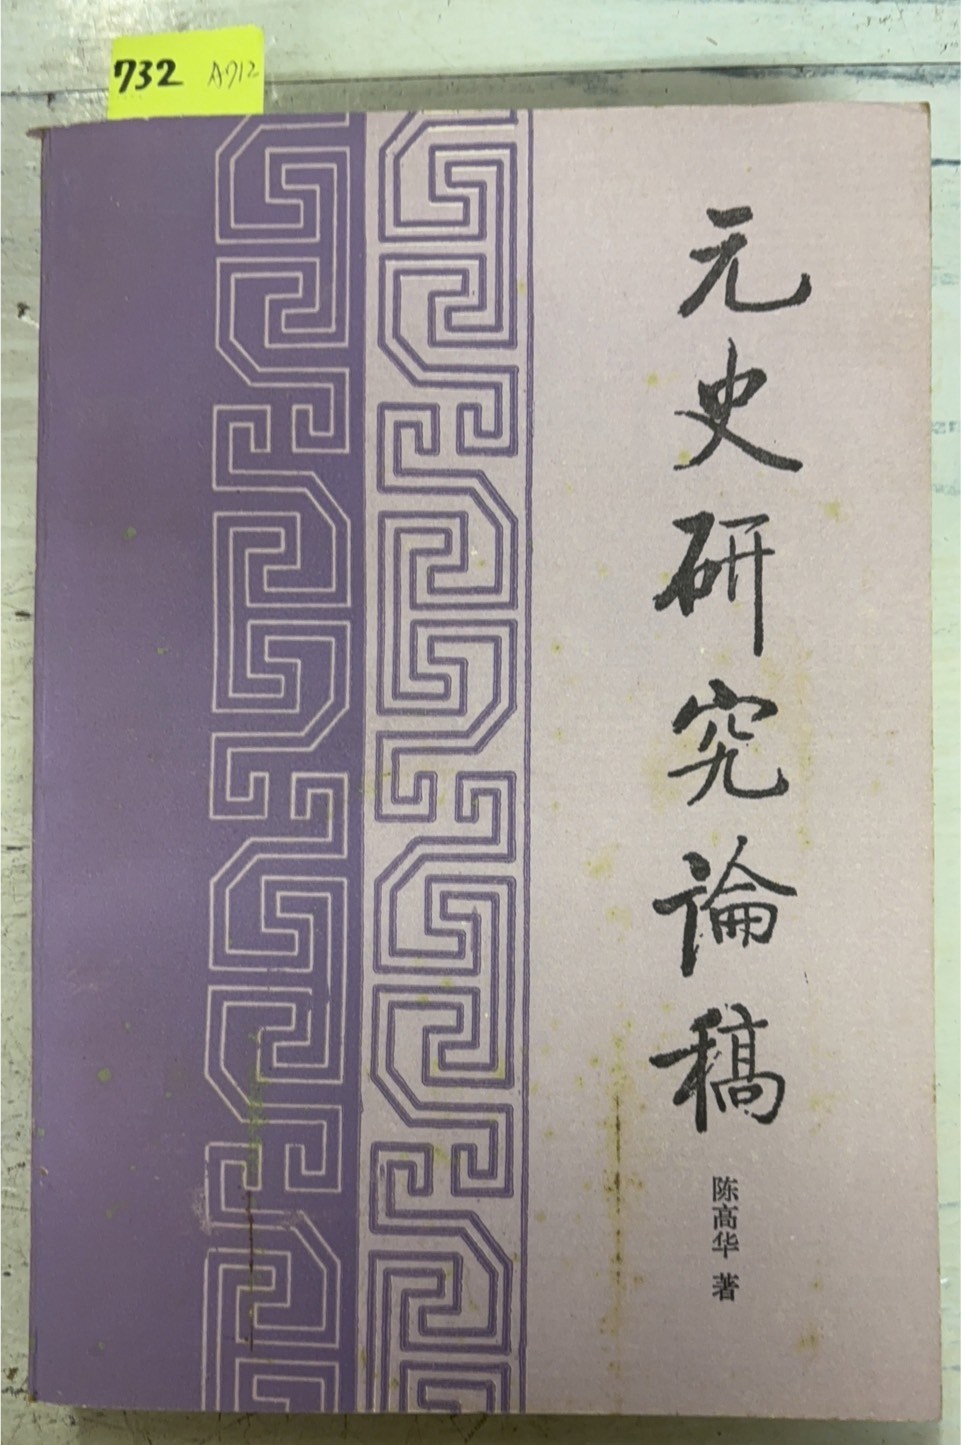 732 A712
元史研究論稿
陈高华 著